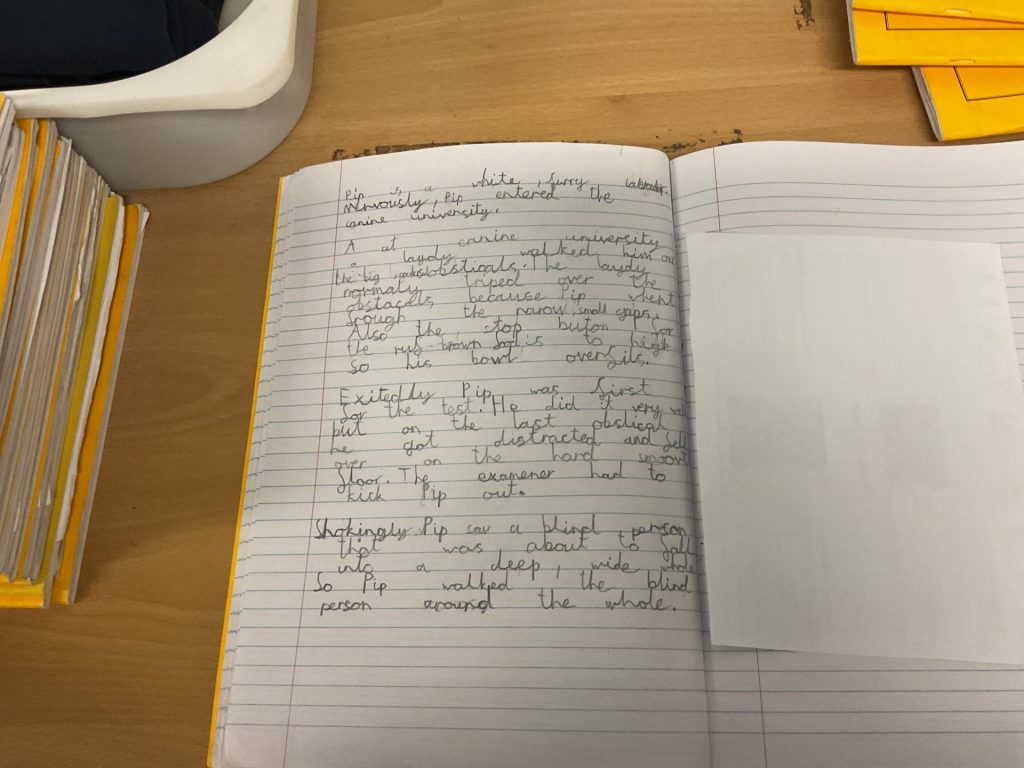 Pip is a white, furry labrador.
Nervously, Pip entered the
canine university.
A at canine university
a laydy walked him on
the big, obsticals. The laydy
normaly triped over the
obstacels because Pip whent
rough the narow, small gaps.
Also the stop buton for
the rug brown is to high
So his bowl overfils.
Exitedly Pip was first
for the test. He did it very well
but on the last obstical
he got distracted and fell
over on the hard
floor. The examener had to
kick Pip out.
Shokingly Pip saw a blind person
that was about to fall
into a deep, wide whole
So Pip walked the blind
person around the whole.